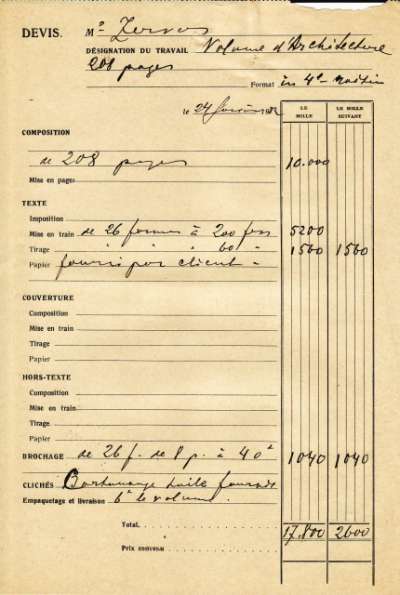 DEVIS. M° Zervos
DÉSIGNATION DU TRAVAIL Volume d'Architecture
208 pages
Format in 4° raisin
le 24
LE MILLE
LE MILLE SUIVANT
COMPOSITION
de 208 pages 10.000
Mise en pages
TEXTE
Imposition
Mise en train de 26 formes à 200 frs 5200
Tirage " " " 60 " 1560 1560
Papier fourni par client -
COUVERTURE
Composition
Mise en train
Tirage
Papier
HORS-TEXTE
Composition
Mise en train
Tirage
Papier
BROCHAGE de 26 f. de 8 p. à 40° 1040 1040
CLICHÉS Cartonnage toile
Empaquetage et livraison 6° le volume.
Total. 17.800 2600
Prix convenu